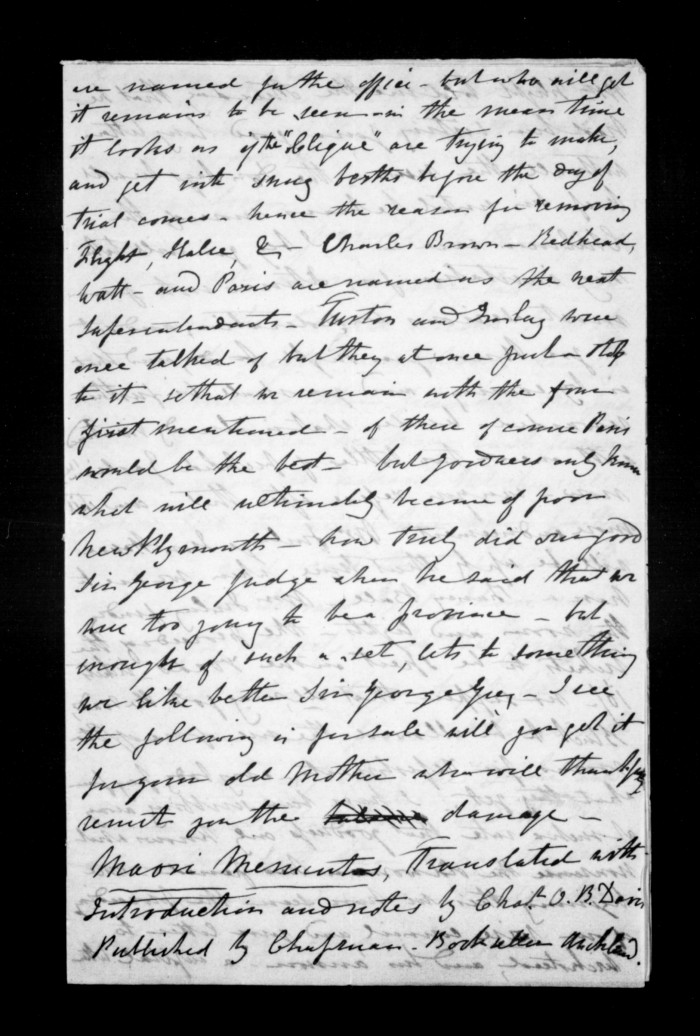 are named for the office - but who will get
it remains to be seen - in the mean time
it looks as if the "Clique" are trying to make,
and get into snug berths before the day of
trial comes - hence the reason for removing
Flight, Halse, &c - Charles Brown - Redhead,
Watt - and Paris are named as the next
Superintendants - Turton and were
once talked of but they at once put a stop
to it - so that we remain with the four
first mentioned - of these of course Paris
would be the best - but goodness only knows
what will ultimately become of poor
New Plymouth - how truly did our good
Sir George judge when he said that we
were too young to be a province - but
enough of such a set, lets to something
we like better Sir George Grey - I see
the following is for sale will you get it
for your old Mother who will thankfully
remit you the damage -
Maori Mementos, Translated with
Introduction and notes by Chas. O. B. Davis
Published by Chapman - Bookseller Auckland.